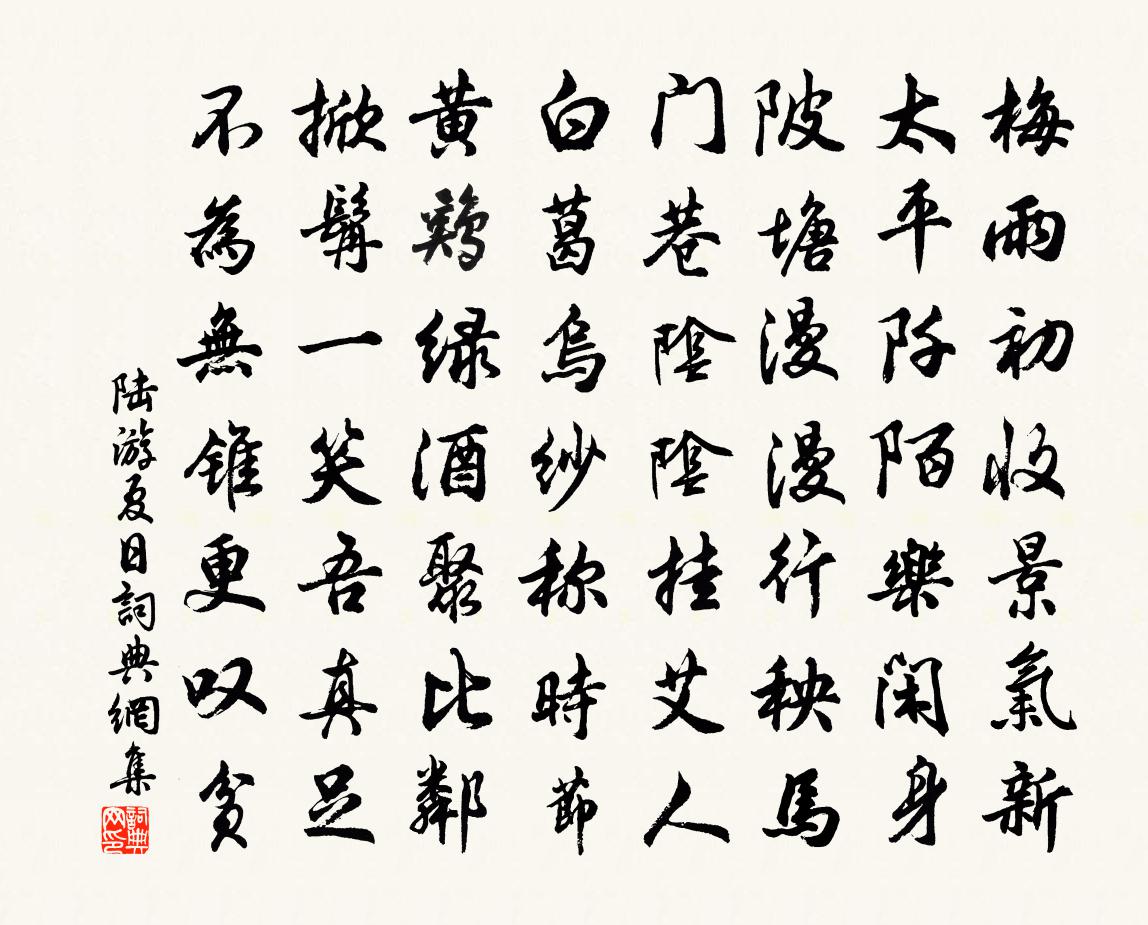 梅雨初收景氣新
太平阡陌樂閑身
陂塘漫漫行秧馬
門巷陰陰挂艾人
白葛烏紗称時節
黄鷄緑酒聚比鄰
掀髯一笑吾真足
不為無錐更叹貧
陆游夏日詞典網集
詞典网印